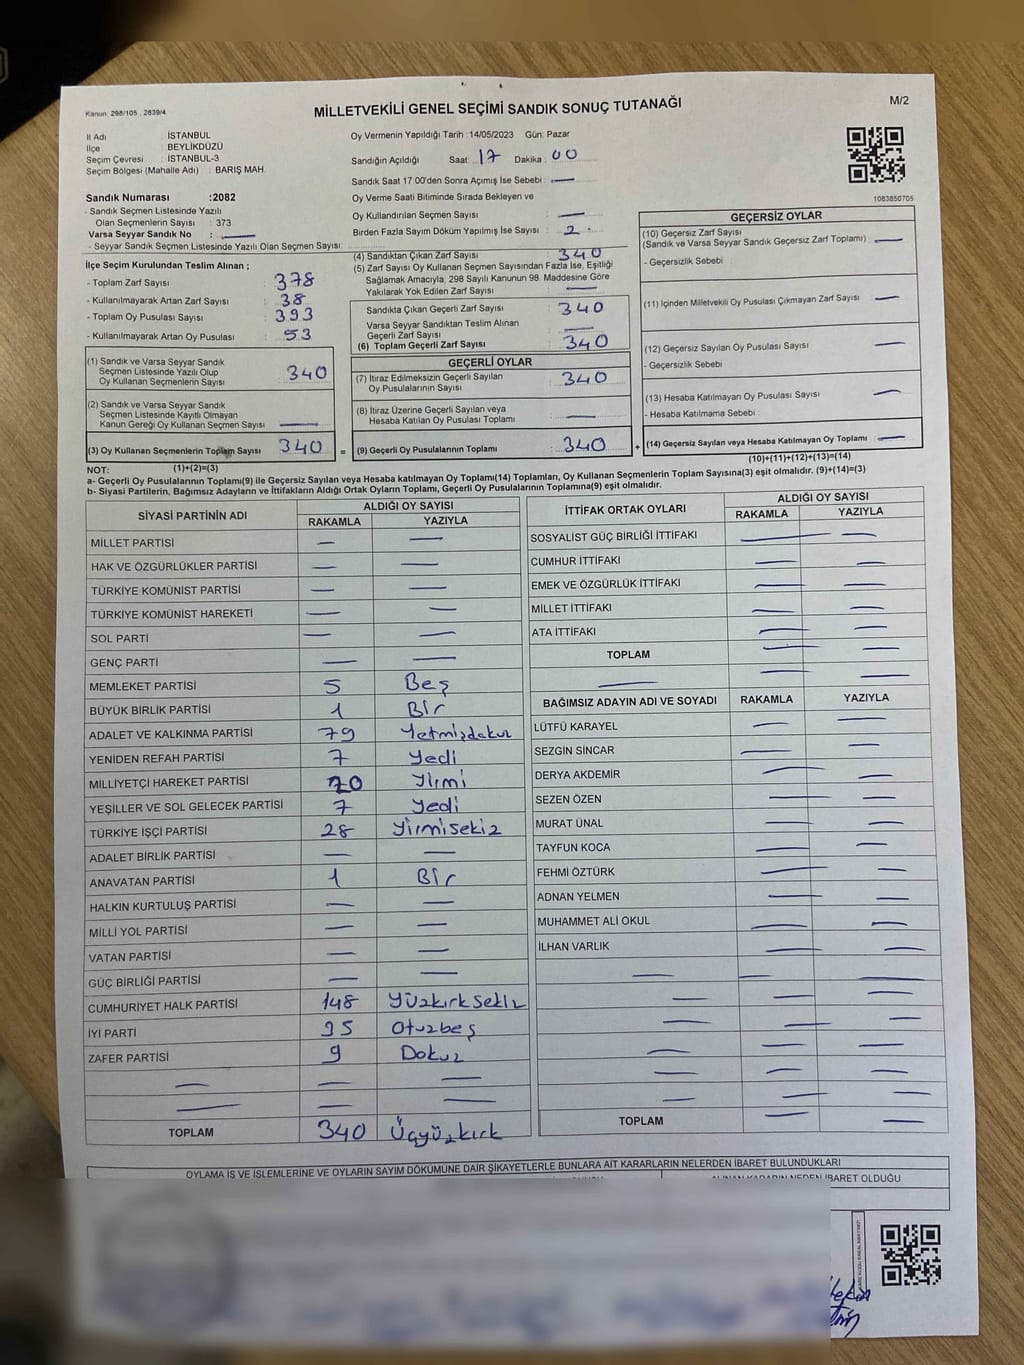 Kanun: 298/105 , 2839/4
MİLLETVEKİLİ GENEL SEÇİMİ SANDIK SONUÇ TUTANAĞI
M/2
İl Adı : İSTANBUL
İlçe : BEYLİKDÜZÜ
Seçim Çevresi : İSTANBUL-3
Seçim Bölgesi (Mahalle Adı) : BARIŞ MAH.
Sandık Numarası :2082
- Sandık Seçmen Listesinde Yazılı
Olan Seçmenlerin Sayısı : 373
Varsa Seyyar Sandık No : —
- Seyyar Sandık Seçmen Listesinde Yazılı Olan Seçmen Sayısı:
Oy Vermenin Yapıldığı Tarih :14/05/2023 Gün: Pazar
Sandığın Açıldığı Saat: 17 Dakika : 00
Sandık Saat 17:00'den Sonra Açımış İse Sebebi : —
Oy Verme Saati Bitiminde Sırada Bekleyen ve
Oy Kullandırılan Seçmen Sayısı —
Birden Fazla Sayım Döküm Yapılmış İse Sayısı : 2
1083850705
İlçe Seçim Kurulundan Teslim Alınan ;
- Toplam Zarf Sayısı : 378
- Kullanılmayarak Artan Zarf Sayısı : 38
- Toplam Oy Pusulası Sayısı : 393
- Kullanılmayarak Artan Oy Pusulası : 53
(1) Sandık ve Varsa Seyyar Sandık
Seçmen Listesinde Yazılı Olup
Oy Kullanan Seçmenlerin Sayısı : 340
(2) Sandık ve Varsa Seyyar Sandık
Seçmen Listesinde Kayıtlı Olmayan
Kanun Gereği Oy Kullanan Seçmen Sayısı —
(3) Oy Kullanan Seçmenlerin Toplam Sayısı 340
(4) Sandıktan Çıkan Zarf Sayısı : 340
(5) Zarf Sayısı Oy Kullanan Seçmen Sayısından Fazla İse, Eşitliği
Sağlamak Amacıyla, 298 Sayılı Kanunun 98. Maddesine Göre
Yakılarak Yok Edilen Zarf Sayısı : —
Sandıkta Çıkan Geçerli Zarf Sayısı : 340
Varsa Seyyar Sandıktan Teslim Alınan
Geçerli Zarf Sayısı : —
(6) Toplam Geçerli Zarf Sayısı : 340
GEÇERLİ OYLAR
(7) İtiraz Edilmeksizin Geçerli Sayılan
Oy Pusulalarının Sayısı : 340
(8) İtiraz Üzerine Geçerli Sayılan veya
Hesaba Katılan Oy Pusulası Toplamı : —
= (9) Geçerli Oy Pusulalarının Toplamı : 340 +
GEÇERSİZ OYLAR
(10) Geçersiz Zarf Sayısı
(Sandık ve Varsa Seyyar Sandık Geçersiz Zarf Toplamı) : —
- Geçersizlik Sebebi :
(11) İçinden Milletvekili Oy Pusulası Çıkmayan Zarf Sayısı : —
(12) Geçersiz Sayılan Oy Pusulası Sayısı : —
- Geçersizlik Sebebi :
(13) Hesaba Katılmayan Oy Pusulası Sayısı : —
- Hesaba Katılmama Sebebi :
(14) Geçersiz Sayılan veya Hesaba Katılmayan Oy Toplamı : —
NOT: (1)+(2)=(3)
(10)+(11)+(12)+(13)=(14)
a- Geçerli Oy Pusulalarının Toplamı(9) ile Geçersiz Sayılan veya Hesaba katılmayan Oy Toplamı(14) Toplamları, Oy Kullanan Seçmenlerin Toplam Sayısına(3) eşit olmalıdır. (9)+(14)=(3)
b- Siyasi Partilerin, Bağımsız Adayların ve İttifakların Aldığı Ortak Oyların Toplamı, Geçerli Oy Pusulalarının Toplamına(9) eşit olmalıdır.
SİYASİ PARTİNİN ADI ALDIĞI OY SAYISI
RAKAMLA YAZIYLA
MİLLET PARTİSİ — —
HAK VE ÖZGÜRLÜKLER PARTİSİ — —
TÜRKİYE KOMÜNİST PARTİSİ — —
TÜRKİYE KOMÜNİST HAREKETİ — —
SOL PARTİ — —
GENÇ PARTİ — —
MEMLEKET PARTİSİ 5 Beş
BÜYÜK BİRLİK PARTİSİ 1 Bir
ADALET VE KALKINMA PARTİSİ 79 Yetmişdokuz
YENİDEN REFAH PARTİSİ 7 Yedi
MİLLİYETÇİ HAREKET PARTİSİ 20 Yirmi
YEŞİLLER VE SOL GELECEK PARTİSİ 7 Yedi
TÜRKİYE İŞÇİ PARTİSİ 28 Yirmisekiz
ADALET BİRLİK PARTİSİ — —
ANAVATAN PARTİSİ 1 Bir
HALKIN KURTULUŞ PARTİSİ — —
MİLLİ YOL PARTİSİ — —
VATAN PARTİSİ — —
GÜÇ BİRLİĞİ PARTİSİ — —
CUMHURİYET HALK PARTİSİ 148 Yüzkırksekiz
İYİ PARTİ 35 Otuzbeş
ZAFER PARTİSİ 9 Dokuz
— — —
— — —
TOPLAM 340 Üçyüzkırk
İTTİFAK ORTAK OYLARI ALDIĞI OY SAYISI
RAKAMLA YAZIYLA
SOSYALİST GÜÇ BİRLİĞİ İTTİFAKI — —
CUMHUR İTTİFAKI — —
EMEK VE ÖZGÜRLÜK İTTİFAKI — —
MİLLET İTTİFAKI — —
ATA İTTİFAKI — —
TOPLAM — —
— — —
BAĞIMSIZ ADAYIN ADI VE SOYADI RAKAMLA YAZIYLA
LÜTFÜ KARAYEL — —
SEZGİN SİNCAR — —
DERYA AKDEMİR — —
SEZEN ÖZEN — —
MURAT ÜNAL — —
TAYFUN KOCA — —
FEHMİ ÖZTÜRK — —
ADNAN YELMEN — —
MUHAMMET ALİ OKUL — —
İLHAN VARLIK — —
— — —
— — —
— — —
— — —
— — —
— — —
TOPLAM — —
OYLAMA İŞ VE İŞLEMLERİNE VE OYLARIN SAYIM DÖKÜMÜNE DAİR ŞİKAYETLERLE BUNLARA AİT KARARLARIN NELERDEN İBARET BULUNDUKLARI
ALINAN KARARIN NEDEN İBARET OLDUĞU